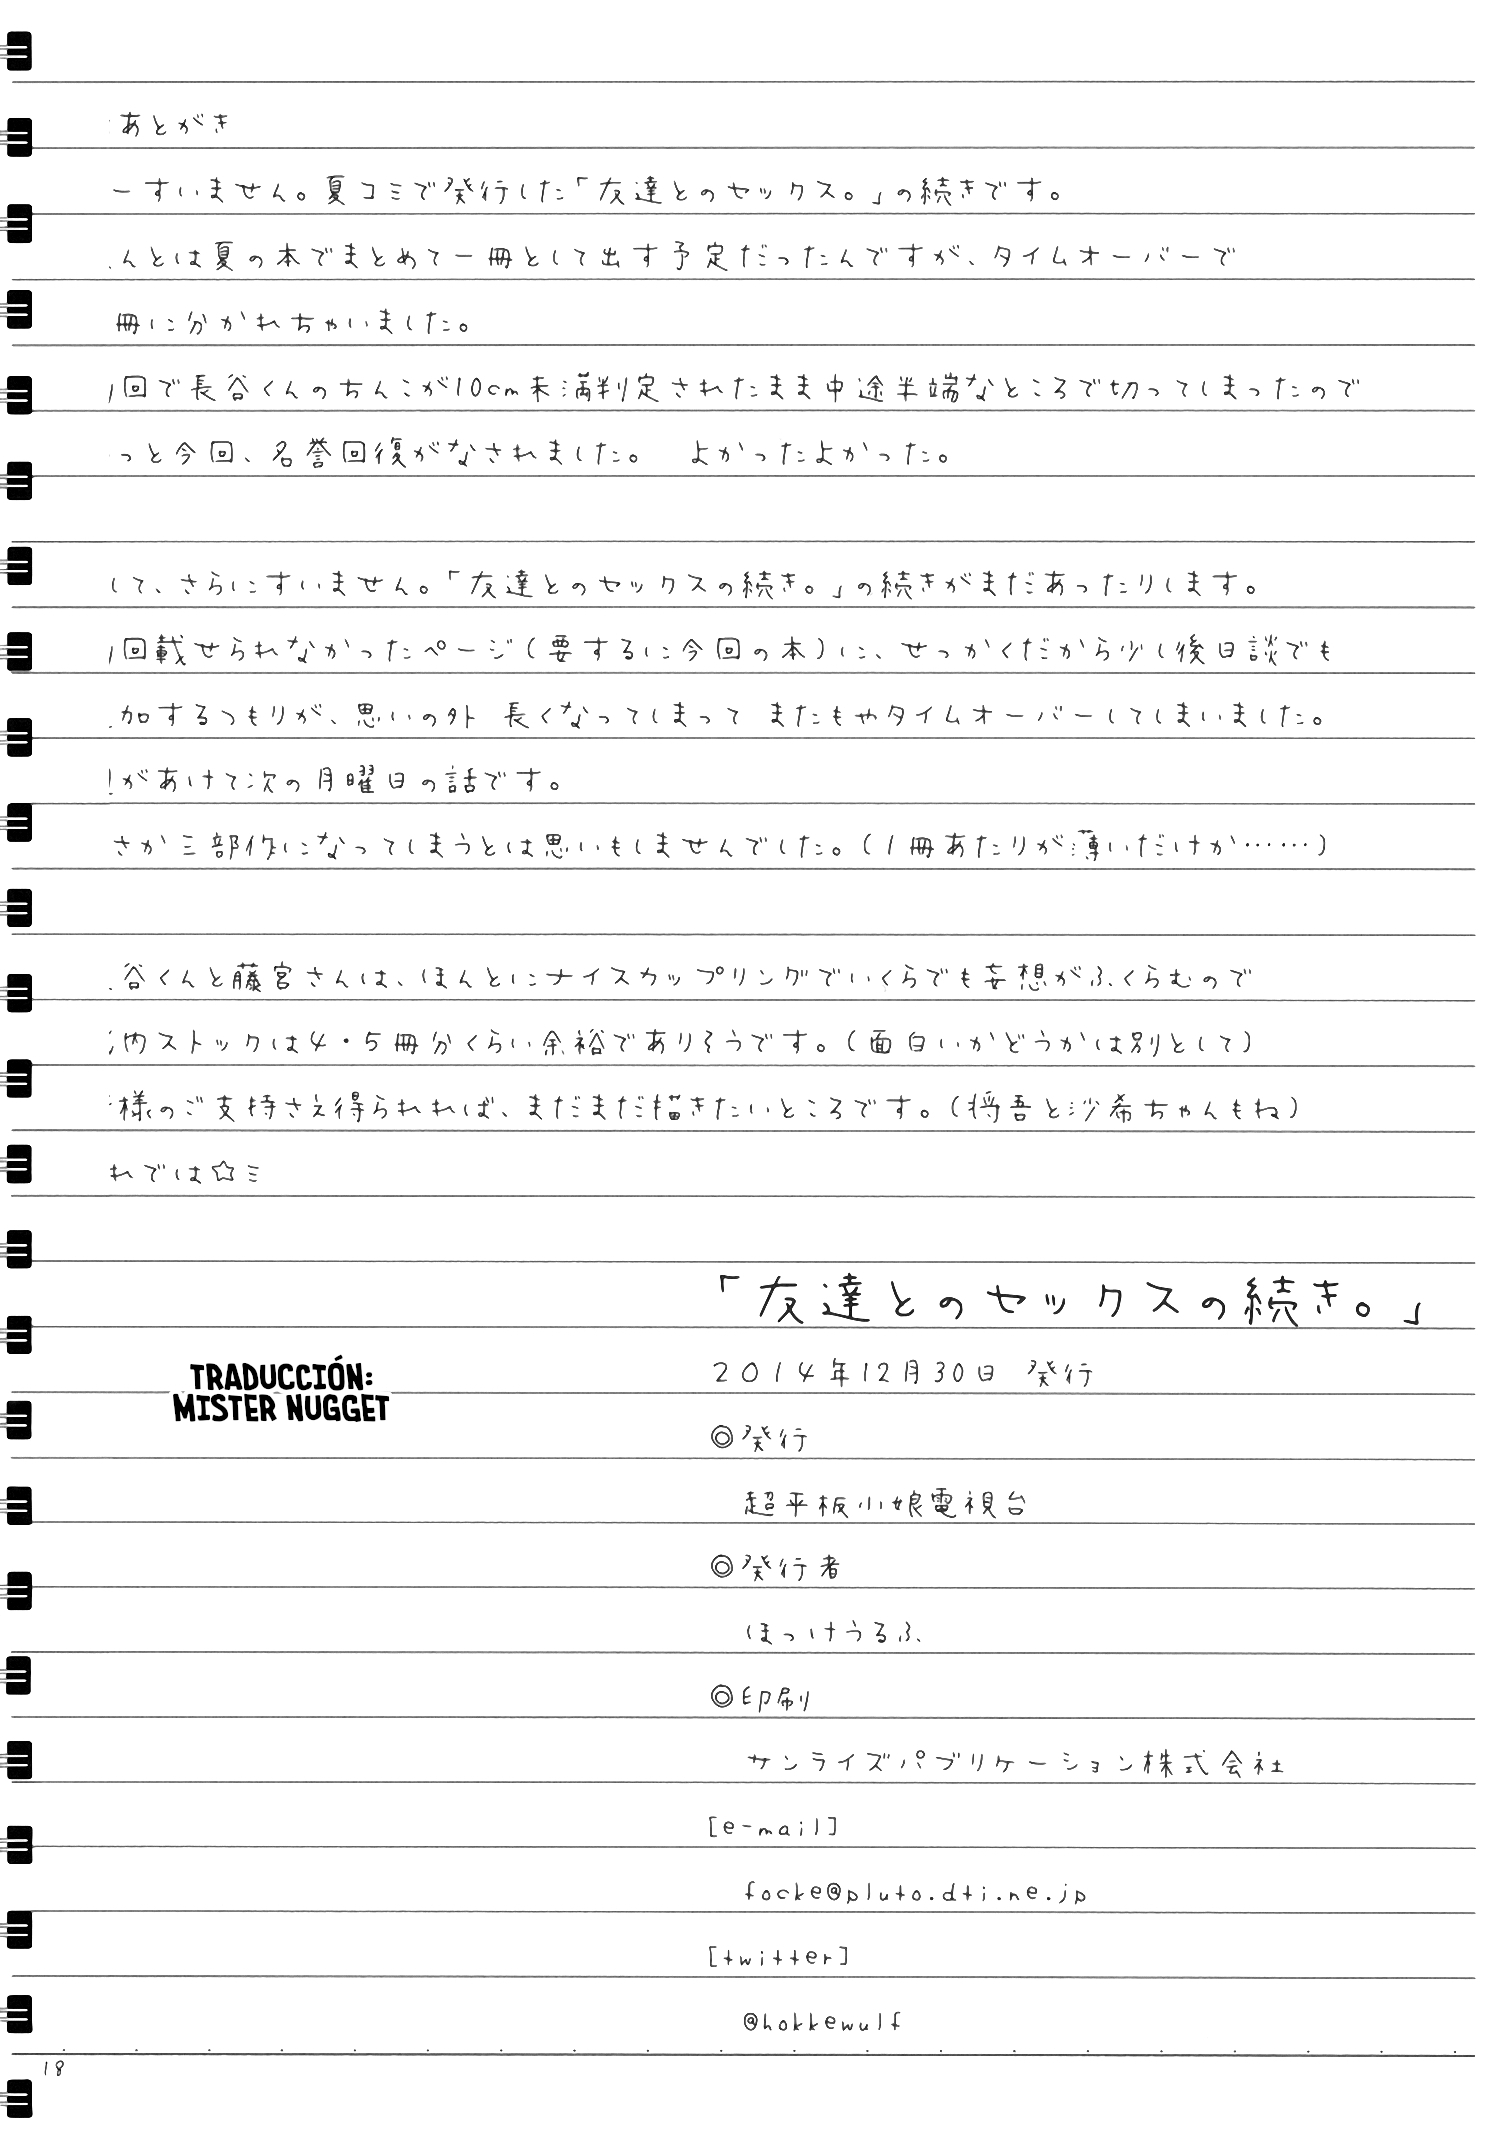 あとがき
ーすいません。夏コミで発行した「友達とのセックス。」の続きです。
んとは夏の本でまとめて一冊として出す予定だったんですが、タイムオーバーで
冊に分かれちゃいました。
回で長谷くんのちんこが10cm未満判定されたまま中途半端なところで切ってしまったので
っと今回、名誉回復がなされました。　よかったよかった。
して、さらにすいません。「友達とのセックスの続き。」の続きがまだあったりします。
回載せられなかったページ(要するに今回の本)に、せっかくだから少し後日談でも
加するつもりが、思いの外 長くなってしまって またもやタイムオーバーしてしまいました。
があけて次の月曜日の話です。
さか三部作になってしまうとは思いもしませんでした。(1冊あたりが薄いだけか……)
谷くんと藤宮さんは、ほんとにナイスカップリングでいくらでも妄想がふくらむので
内ストックは4・5冊分くらい余裕でありそうです。(面白いかどうかは別として)
様のご支持さえ得られれば、まだまだ描きたいところです。(将吾と沙希ちゃんもね)
れでは☆ミ
「友達とのセックスの続き。」
2014年12月30日 発行
TRADUCCIÓN:
MISTER NUGGET
◎発行
超平板小娘電視台
◎発行者
ほっけうるふ
◎印刷
サンライズパブリケーション株式会社
[e-mail]
focke@pluto.dti.ne.jp
[twitter]
@hokkewulf
18